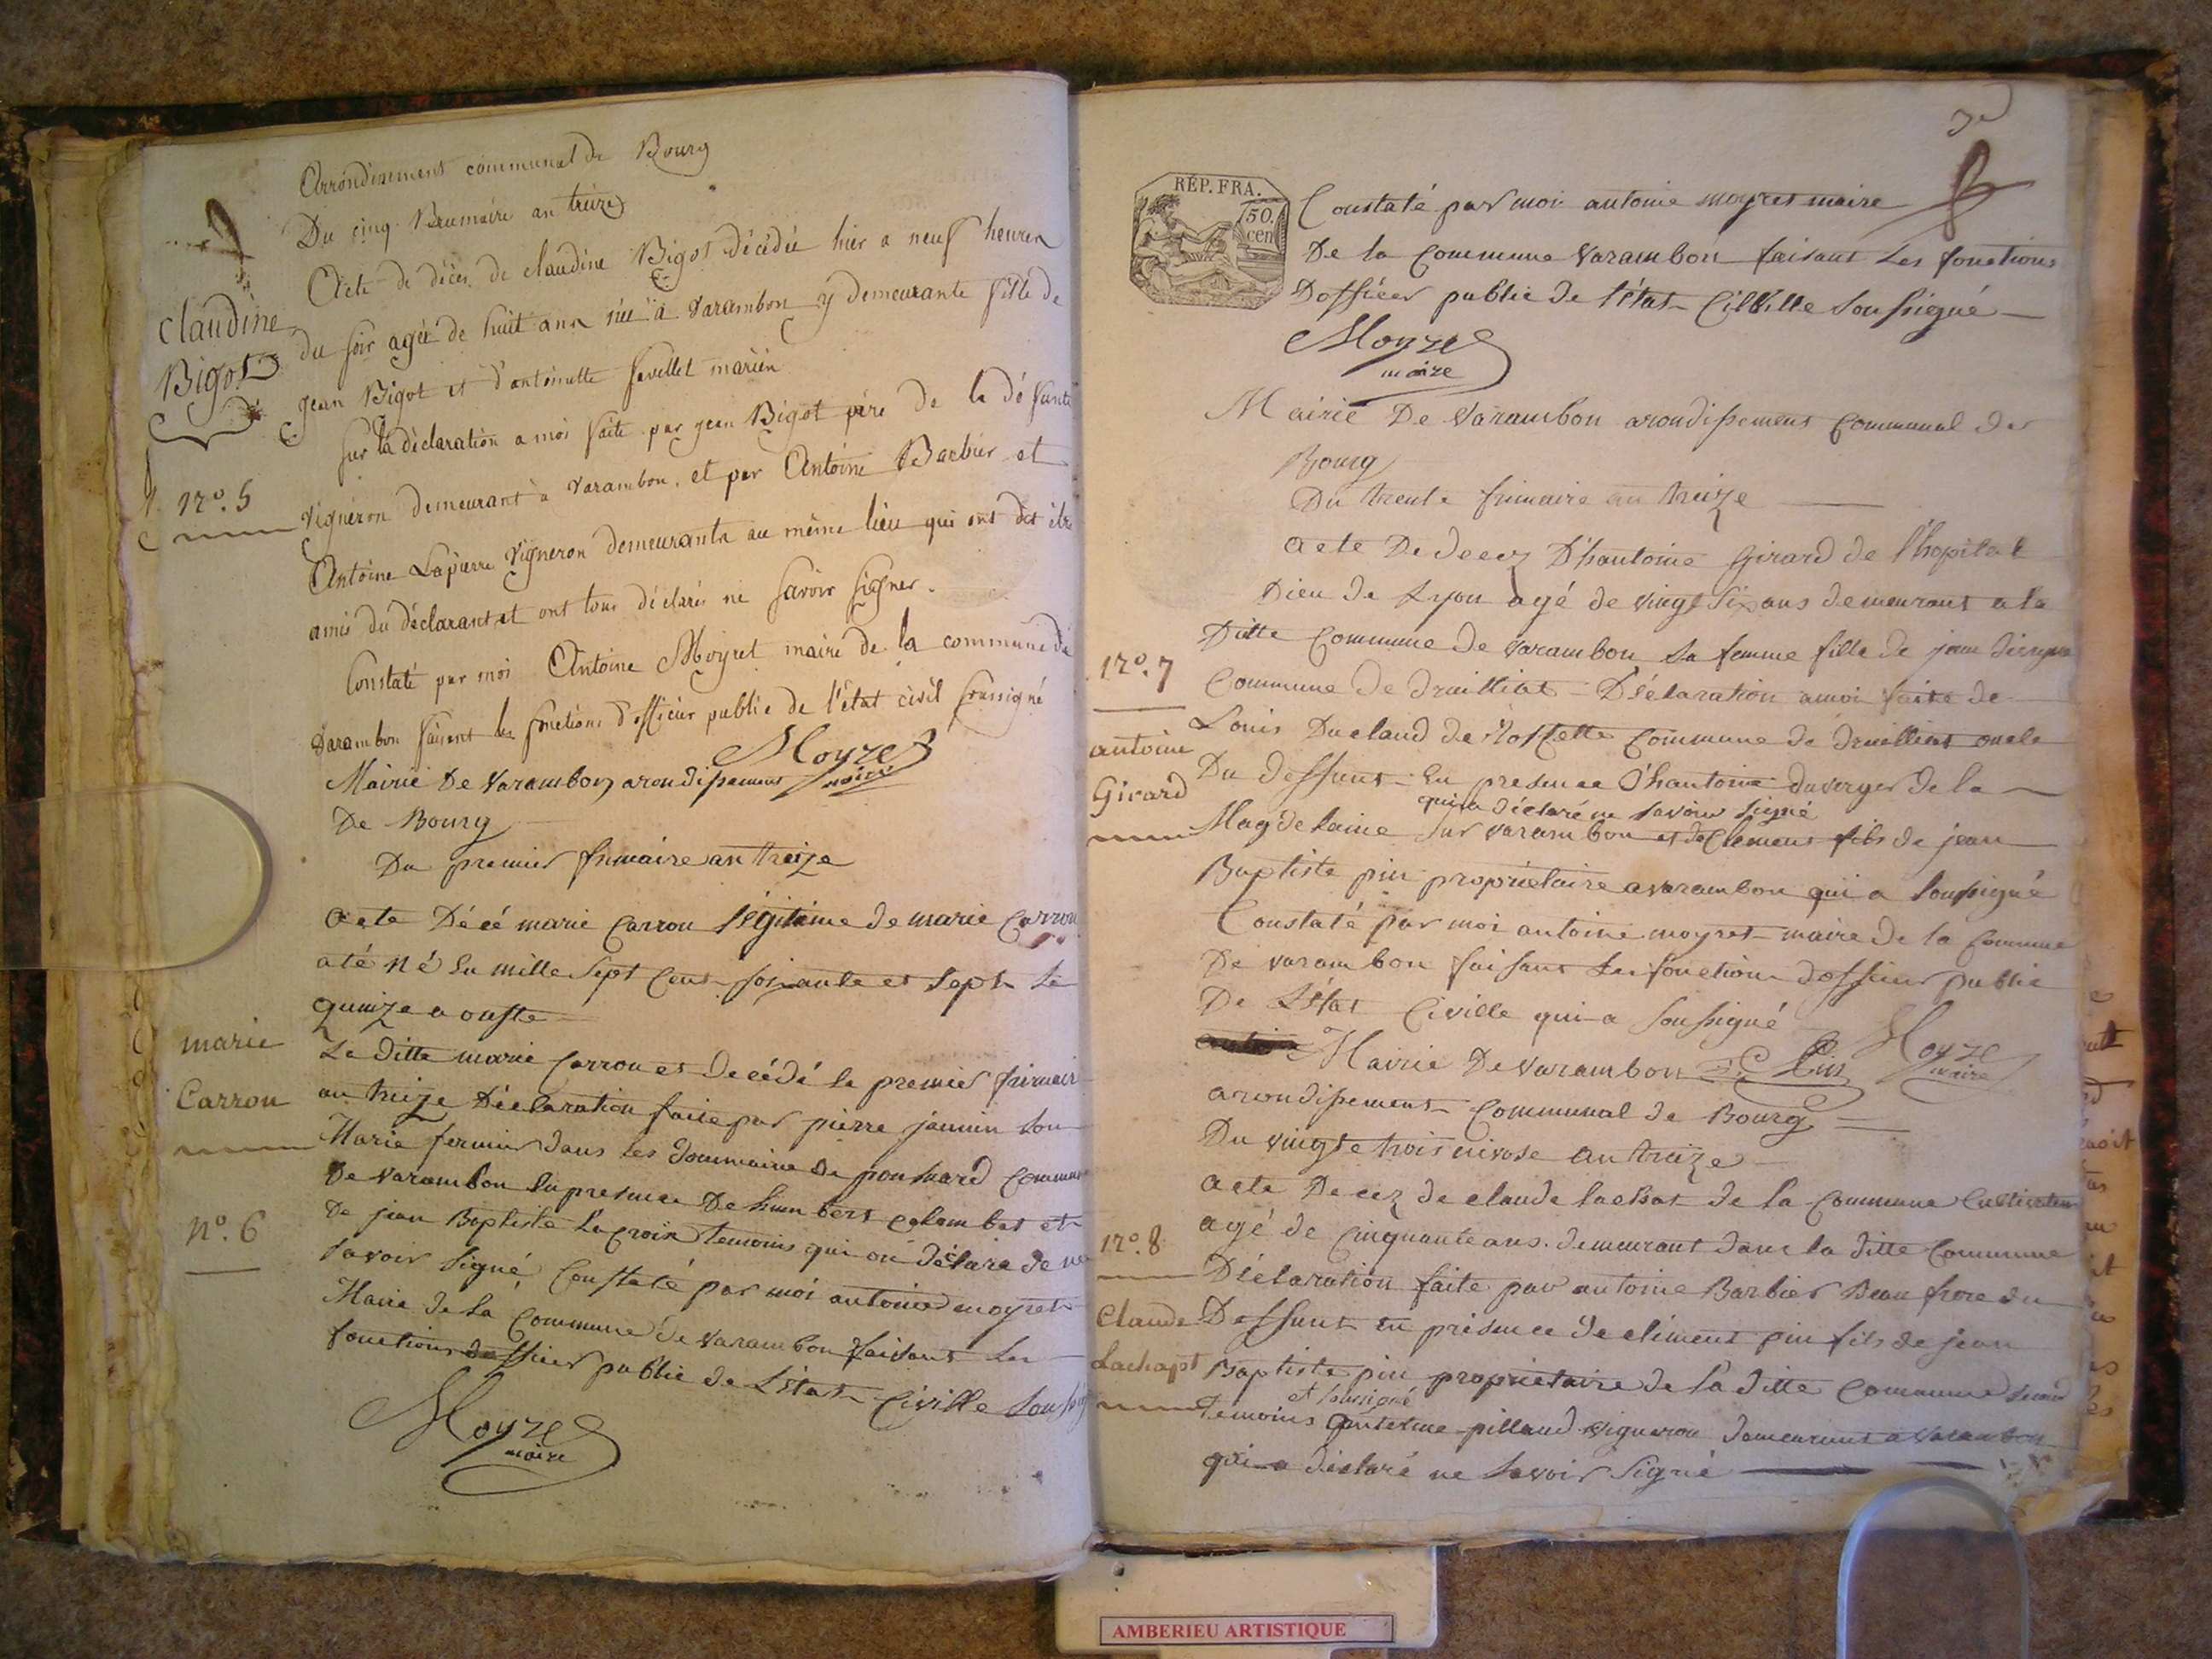 Arrondisement communal de Bourg
Du cinq Brumaire an treize
Acte de décès de claudine Bigot décédée hier a neuf heures
du soir agée de huit ans née à varambon y demeurante fille de
jean Bigot et d'antoinette mariés
claudine
Bigot
sur la déclaration a moi faite par jean Bigot père de la défunte
n°. 5
vigneron demeurant à varambon, et par Antoine Barbier et
Antoine Lapierre vigneron demeurants au même lieu qui ont dit être
amis du déclarant et ont tous déclarés ne savoir signer.
Constaté par moi Antoine Moyret maire de la commune de
varambon faisant les fonctions d'officier public de l'état civil soussigné
Moyret
maire
Mairie De Varambon arondissement
De Bourg
Du premier frimaire an treize
acte Décé marie Carron légitime de marie Carron
a té né En mille sept cent soisante et sept le
quinze a ouste
marie
Carron
n°. 6
La ditte marie Carron et decédé le premier frimaire
an treize Déclaration faite par pierre jannin son
Marie fermier dans les dommaine de ponhard Commune
De varambon En presence De humbert colombet et
De jean Baptiste Lacroix temoins qui on déclaré de ne
savoir signé Constaté par moi antoine moyret
Maire de la Commune de varambon faisant les
fonctions dofficier public de L'état Civille
Moyret
maire
RÉP. FRA.
50.
cen
Constaté par moi antoine moyret maire
De la Commune varambon faisant Les fonctions
Dofficier public de l'état Cilville soussigné
Moyret
maire
Mairie De Varambon arondissement Communal de
Bourg
Du trente frimaire an treize
acte De decez D'hantoine Girard de l'hopital
Dieu de Lyon agé de vingt six ans demeurant a la
Ditte Commune de varambon sa femme fille de jean
n°. 7
antoine
Girard
Commune de druilliat Déclaration a moi faite de
Louis Duclaud de Commune de druilliat oncle
Du deffunt En presence D'hantoine duverger de la
qui a déclaré ne savoir signé
Magdelaine sur varambon et de Clement fils de jean
Baptiste pin propriétaire a varambon qui a soussigné
Constaté par moi antoine moyret maire de la Commune
De varambon faisant les fonction dofficier public
De L'état Civille qui a soussigné
Moyret
maire
Mairie De Varambon C Pin
arondissement Communal de Bourg
Du vingte trois nivose an treize
n°. 8
Claude
Lachapt
acte Decez de claude lachat de la Commune Cultivateur
agé de Cinquante ans demeurant dans la ditte Commune
Déclaration faite par antoine Barbier Beau frere du
Deffunt En présence de climent pin fils de jean
Baptiste pin propriétaire de la ditte Commune
et soussigné
temoins pilland vigneron demeurant a varambon
qui a déclaré ne savoir signé
AMBERIEU ARTISTIQUE